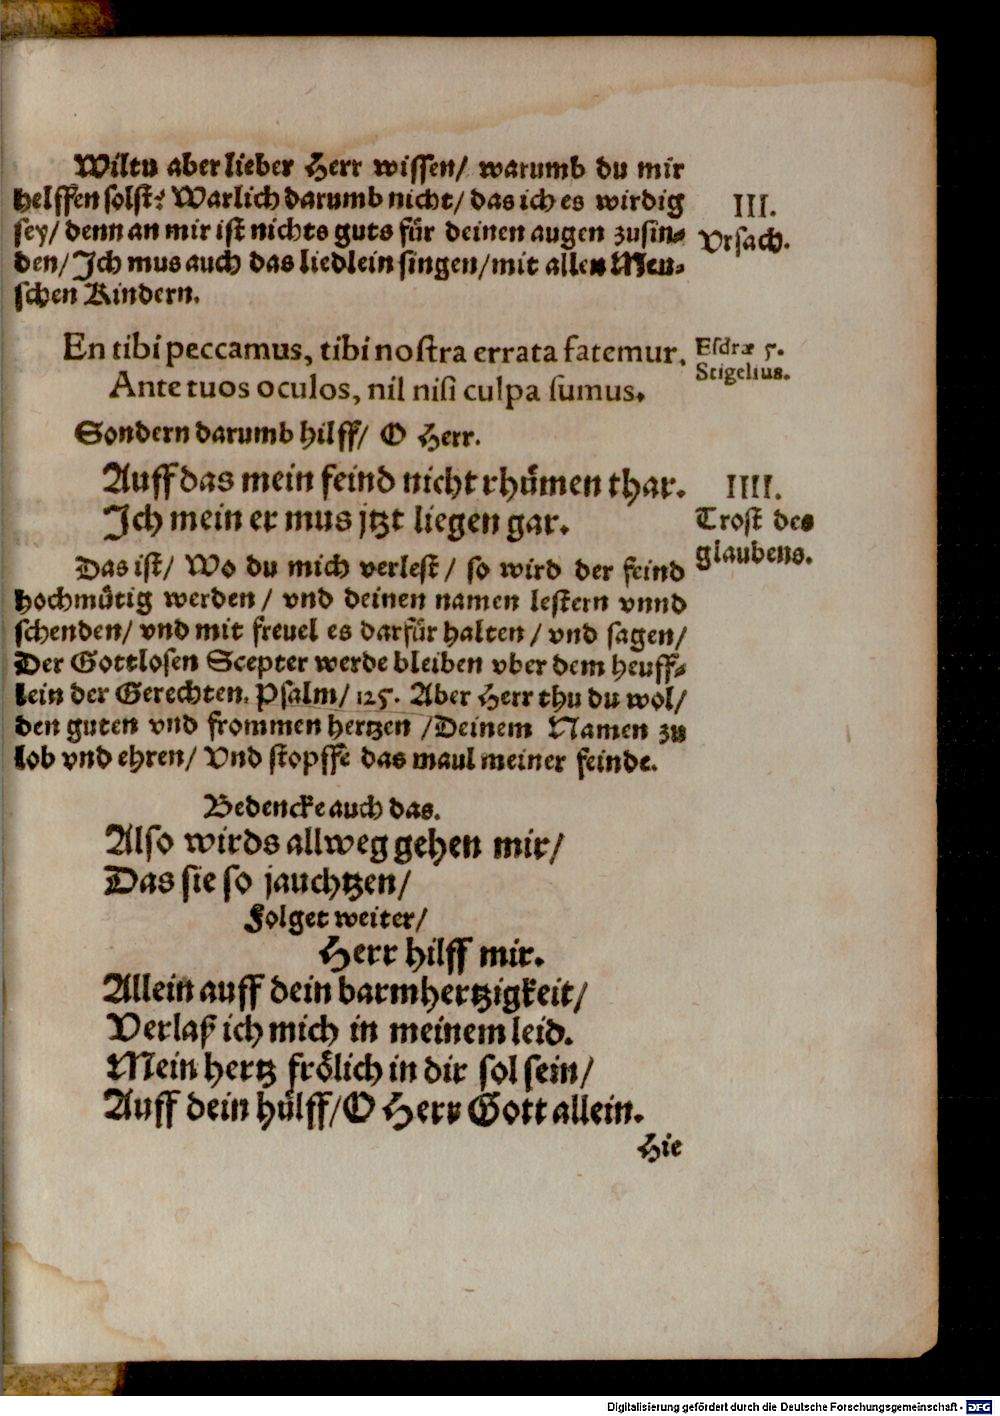 Wiltu aber lieber Herr wissen/ warumb du mir
helffen solst? Warlich darumb nicht/ das ich es wirdig
sey/ denn an mir ist nichts guts für deinen augen zufin=
den/ Ich mus auch das liedlein singen/ mit allen Men=
schen Kindern.
III.
Vrsach.
En tibi peccamus, tibi nostra errata fatemur.
Ante tuos oculos, nil nisi culpa sumus.
Esdræ 5.
Stigelius.
Sondern darumb hilff/ O Herr.
Auff das mein feind nicht rhümen thar.
Ich mein er mus jtzt liegen gar.
IIII.
Trost des
glaubens.
Das ist/ Wo du mich verlest/ so wird der feind
hochmütig werden/ vnd deinen namen lestern vnnd
schenden/ vnd mit freuel es darfür halten/ vnd sagen/
Der Gottlosen Scepter werde bleiben vber dem heuff=
lein der Gerechten. Psalm/ 125. Aber Herr thu du wol/
den guten vnd frommen hertzen/ Deinem Namen zu
lob vnd ehren/ Vnd stopffe das maul meiner feinde.
Bedencke auch das.
Also wirds allweg gehen mir/
Das sie so jauchtzen/
Folget weiter/
Herr hilff mir.
Allein auff dein barmhertzigkeit/
Verlaß ich mich in meinem leid.
Mein hertz frölich in dir sol sein/
Auff dein hülff/ O Herr Gott allein.
Hie
Digitalisierung gefördert durch die Deutsche Forschungsgemeinschaft - DFG